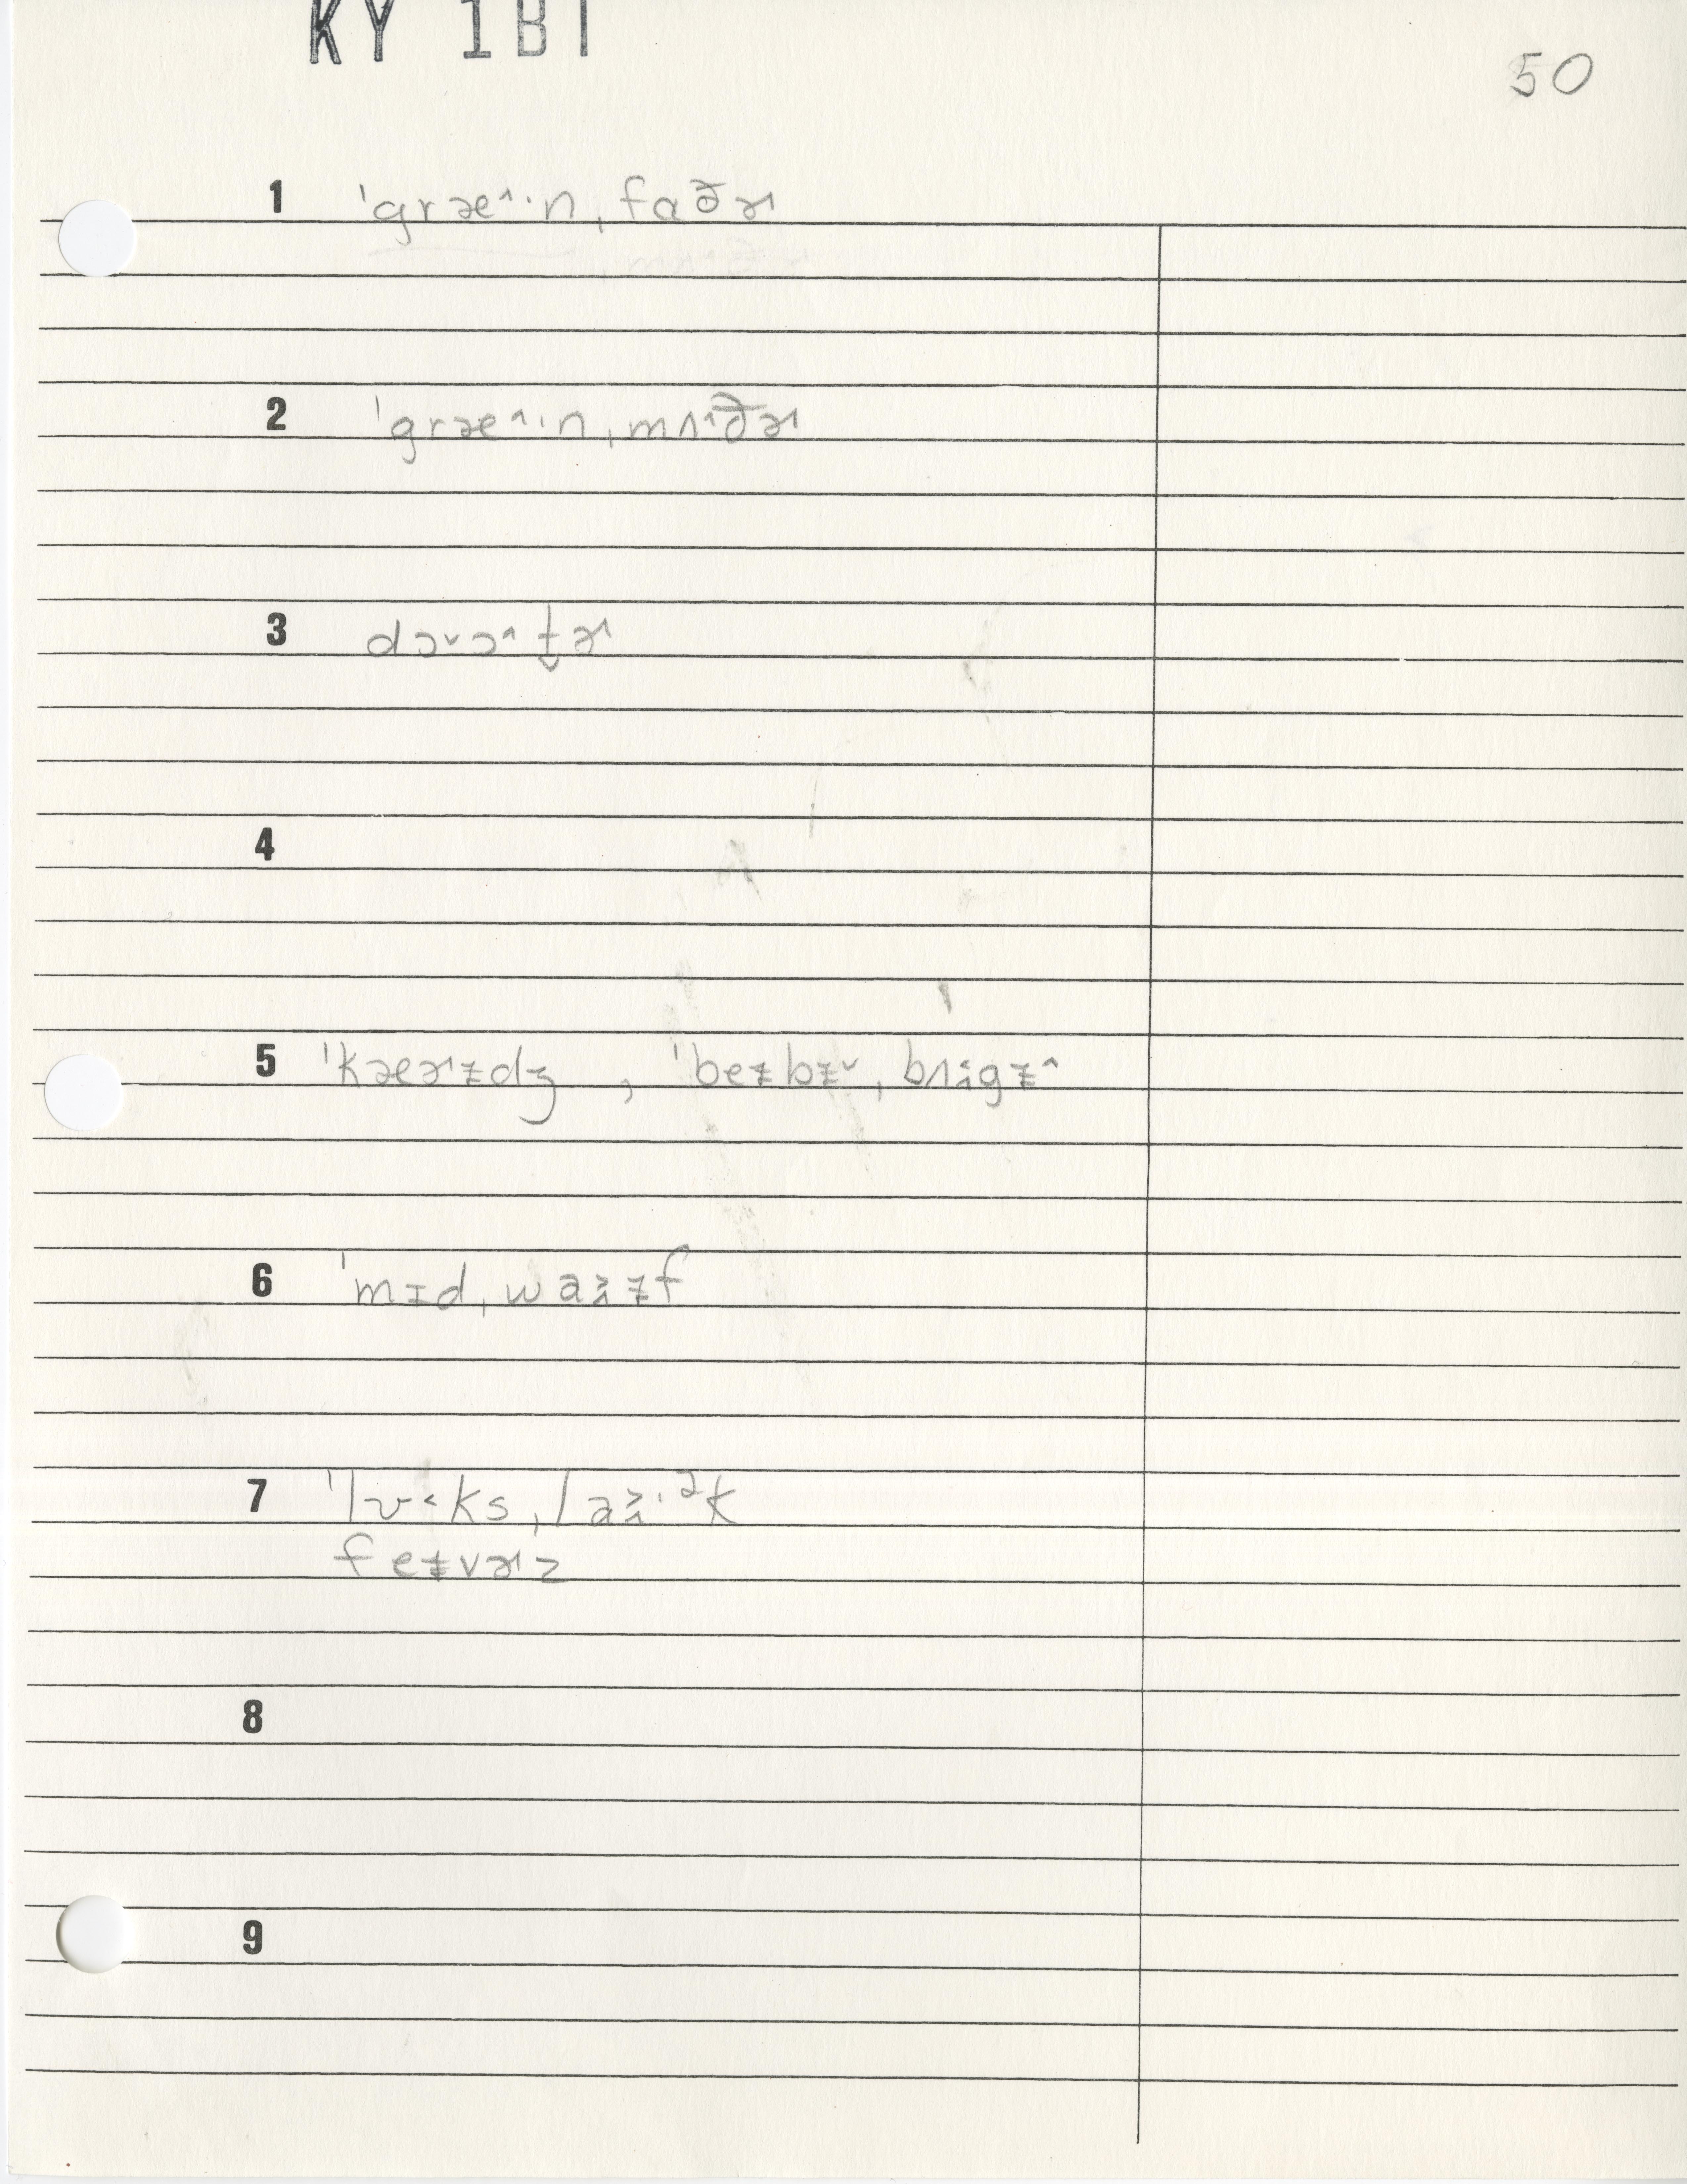 KY 1B1
50
1 ˈgræ˄·n,faðɚ
2 ˈgræ˄·n,mʌ˄ðɚ
3 dɔ˅ɔ˄t̬ɚ
4
5 ˈkæɚɪdʒ , ˈbeɪbɪ˅,bʌgɪ˄
6 ˈmɪd,waɪf
7 ˈlʊ˂ks,laɪ·ᵊk
feɪvɚz
8
9